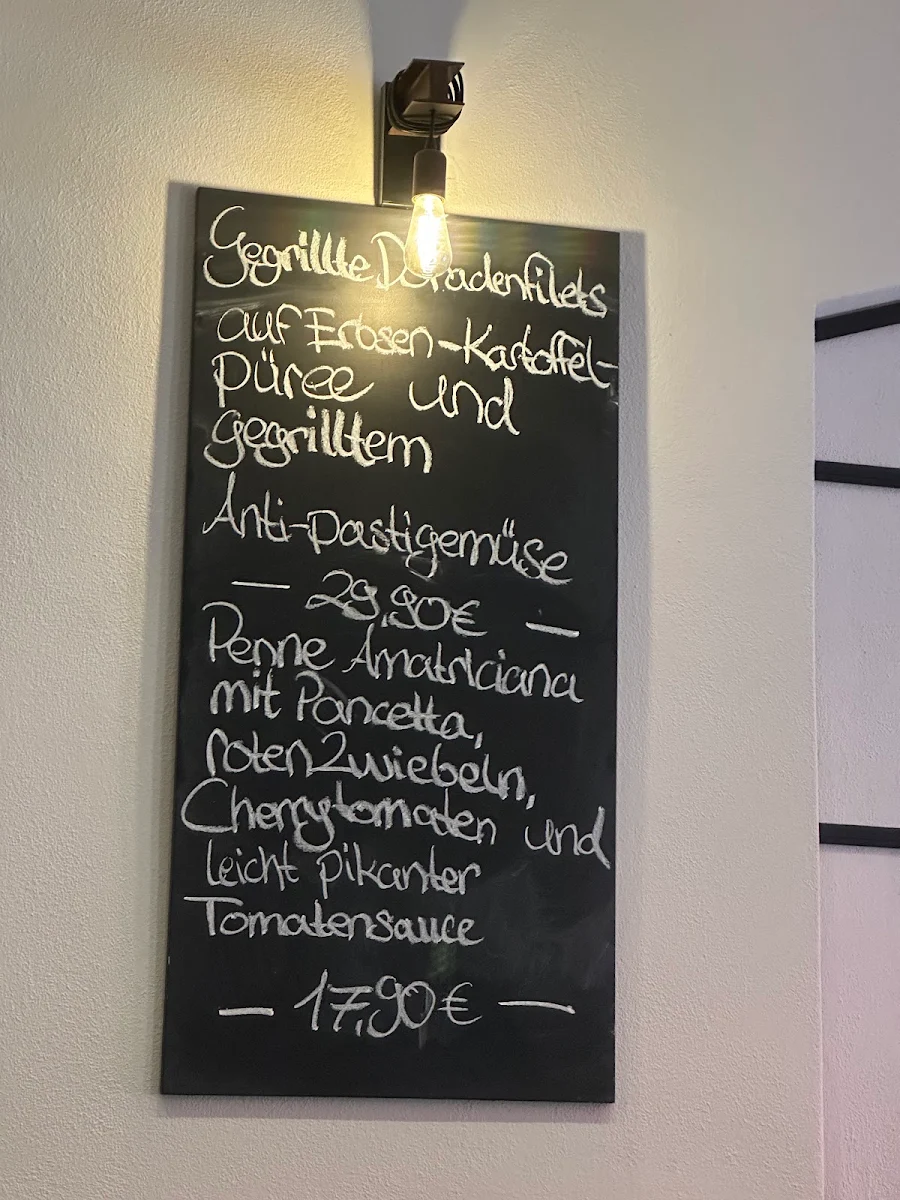 Gegrillte Doradenfilets
auf Erbsen-Kartoffel-
püree und
gegrilltem
Anti-pastigemüse
— 29,90€ —
Penne Amatriciana
mit Pancetta,
roten Zwiebeln,
Cherrytomaten und
leicht pikanter
Tomatensauce
— 17,90€ —